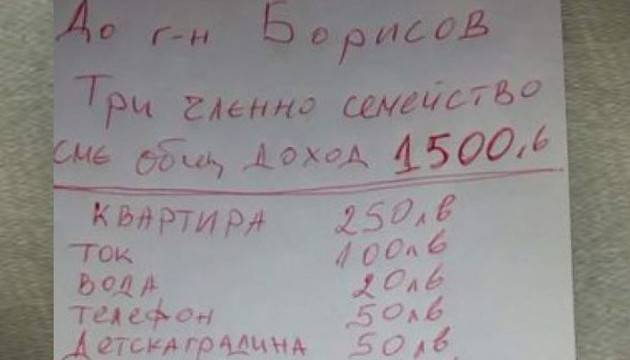 До г-н Борисов
Три членно семейство
сме общ доход 1500лв
КВАРТИРА 250лв
ТОК 100лв
ВОДА 20лв
ТЕЛЕФОН 50лв
ДЕТСКАГРАДИНА 50лв